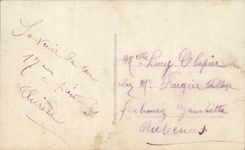 Souvenir de ton
17 me
Aurélie
Melle Lucy Clapier
chez Mr Fargier
faubourg Gambetta
Aubenas